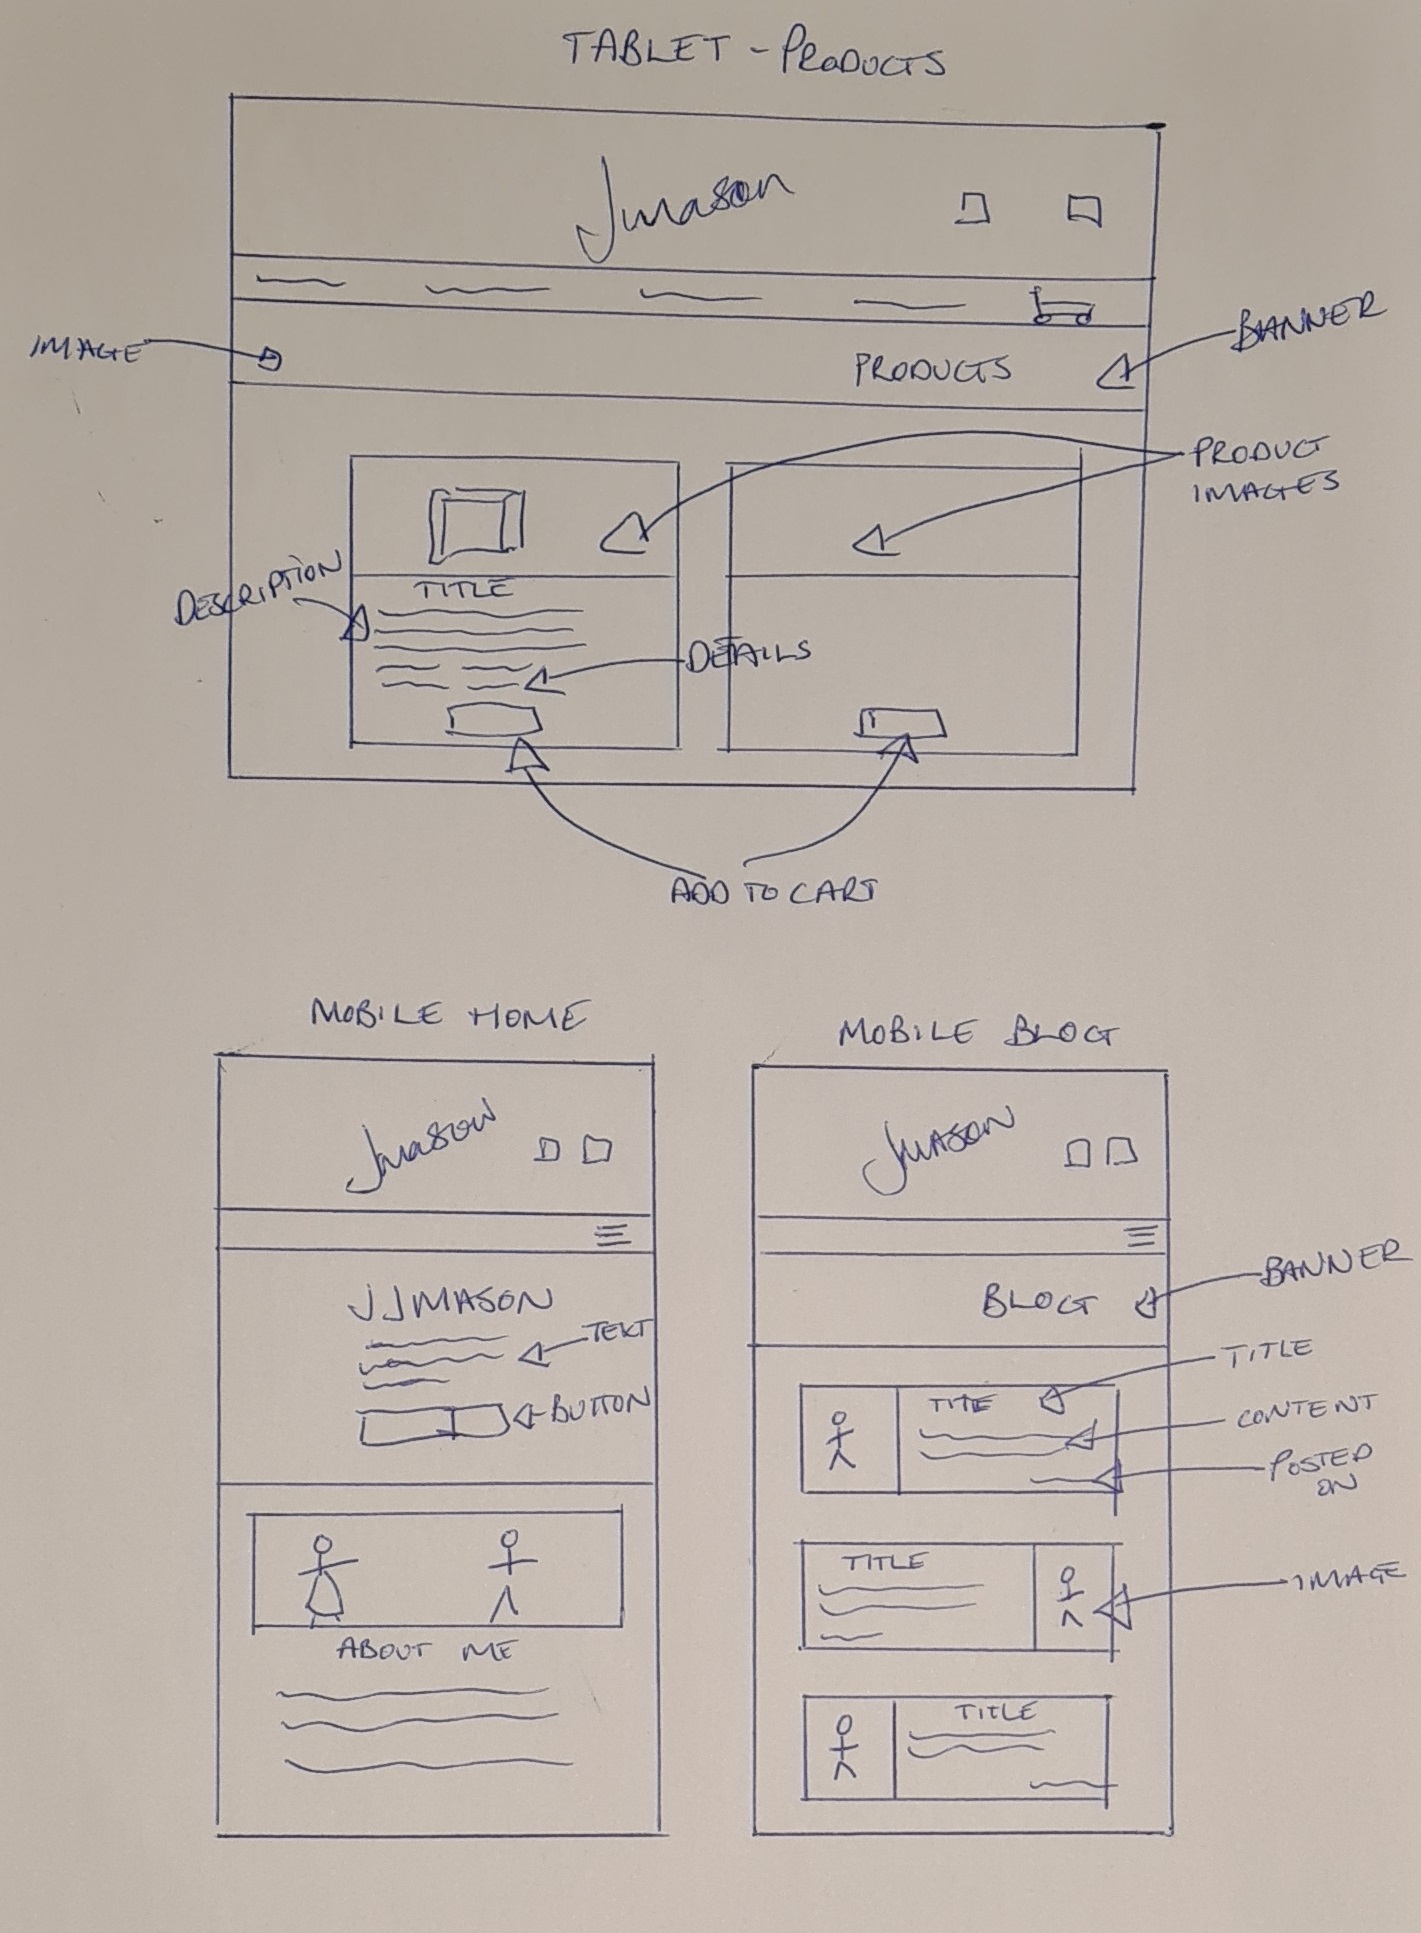 TABLET - PRODUCTS
Jmason
IMAGE
PRODUCTS
BANNER
PRODUCT
IMAGES
DESCRIPTION
TITLE
DETAILS
ADD TO CART
MOBILE HOME
Jmason
JJMASON
TEXT
BUTTON
ABOUT ME
MOBILE BLOG
JMASON
BLOG
BANNER
TITLE
TITLE
CONTENT
POSTED
ON
TITLE
IMAGE
TITLE